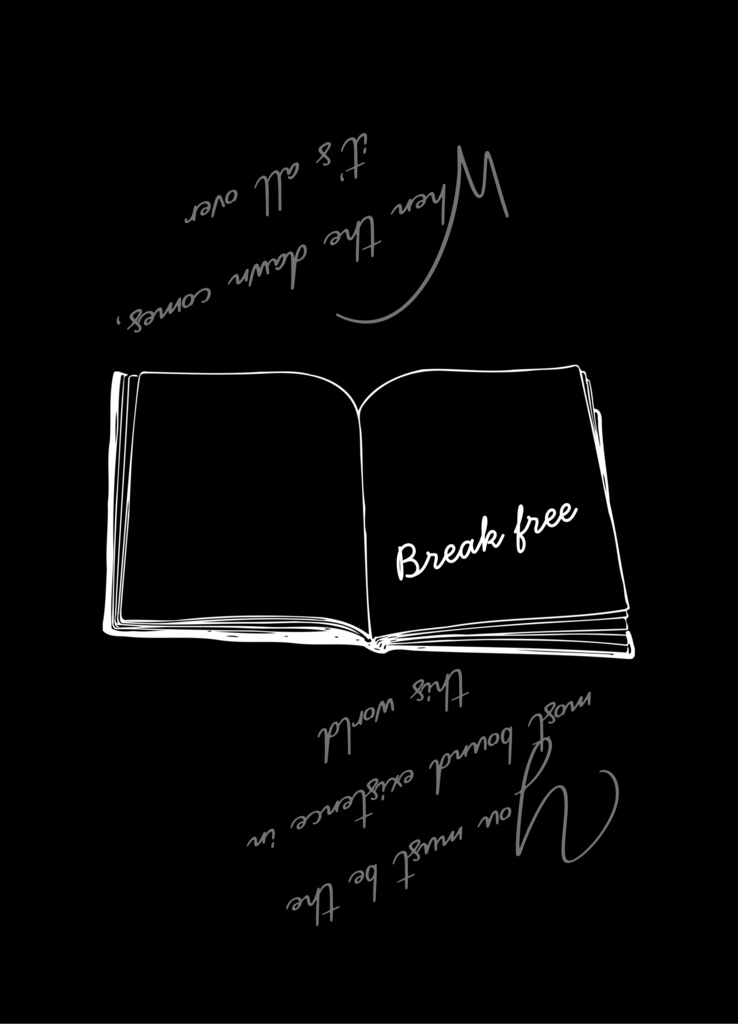 When the dawn comes,
it's all over
Break free
You must be the
most bound existence in
this world